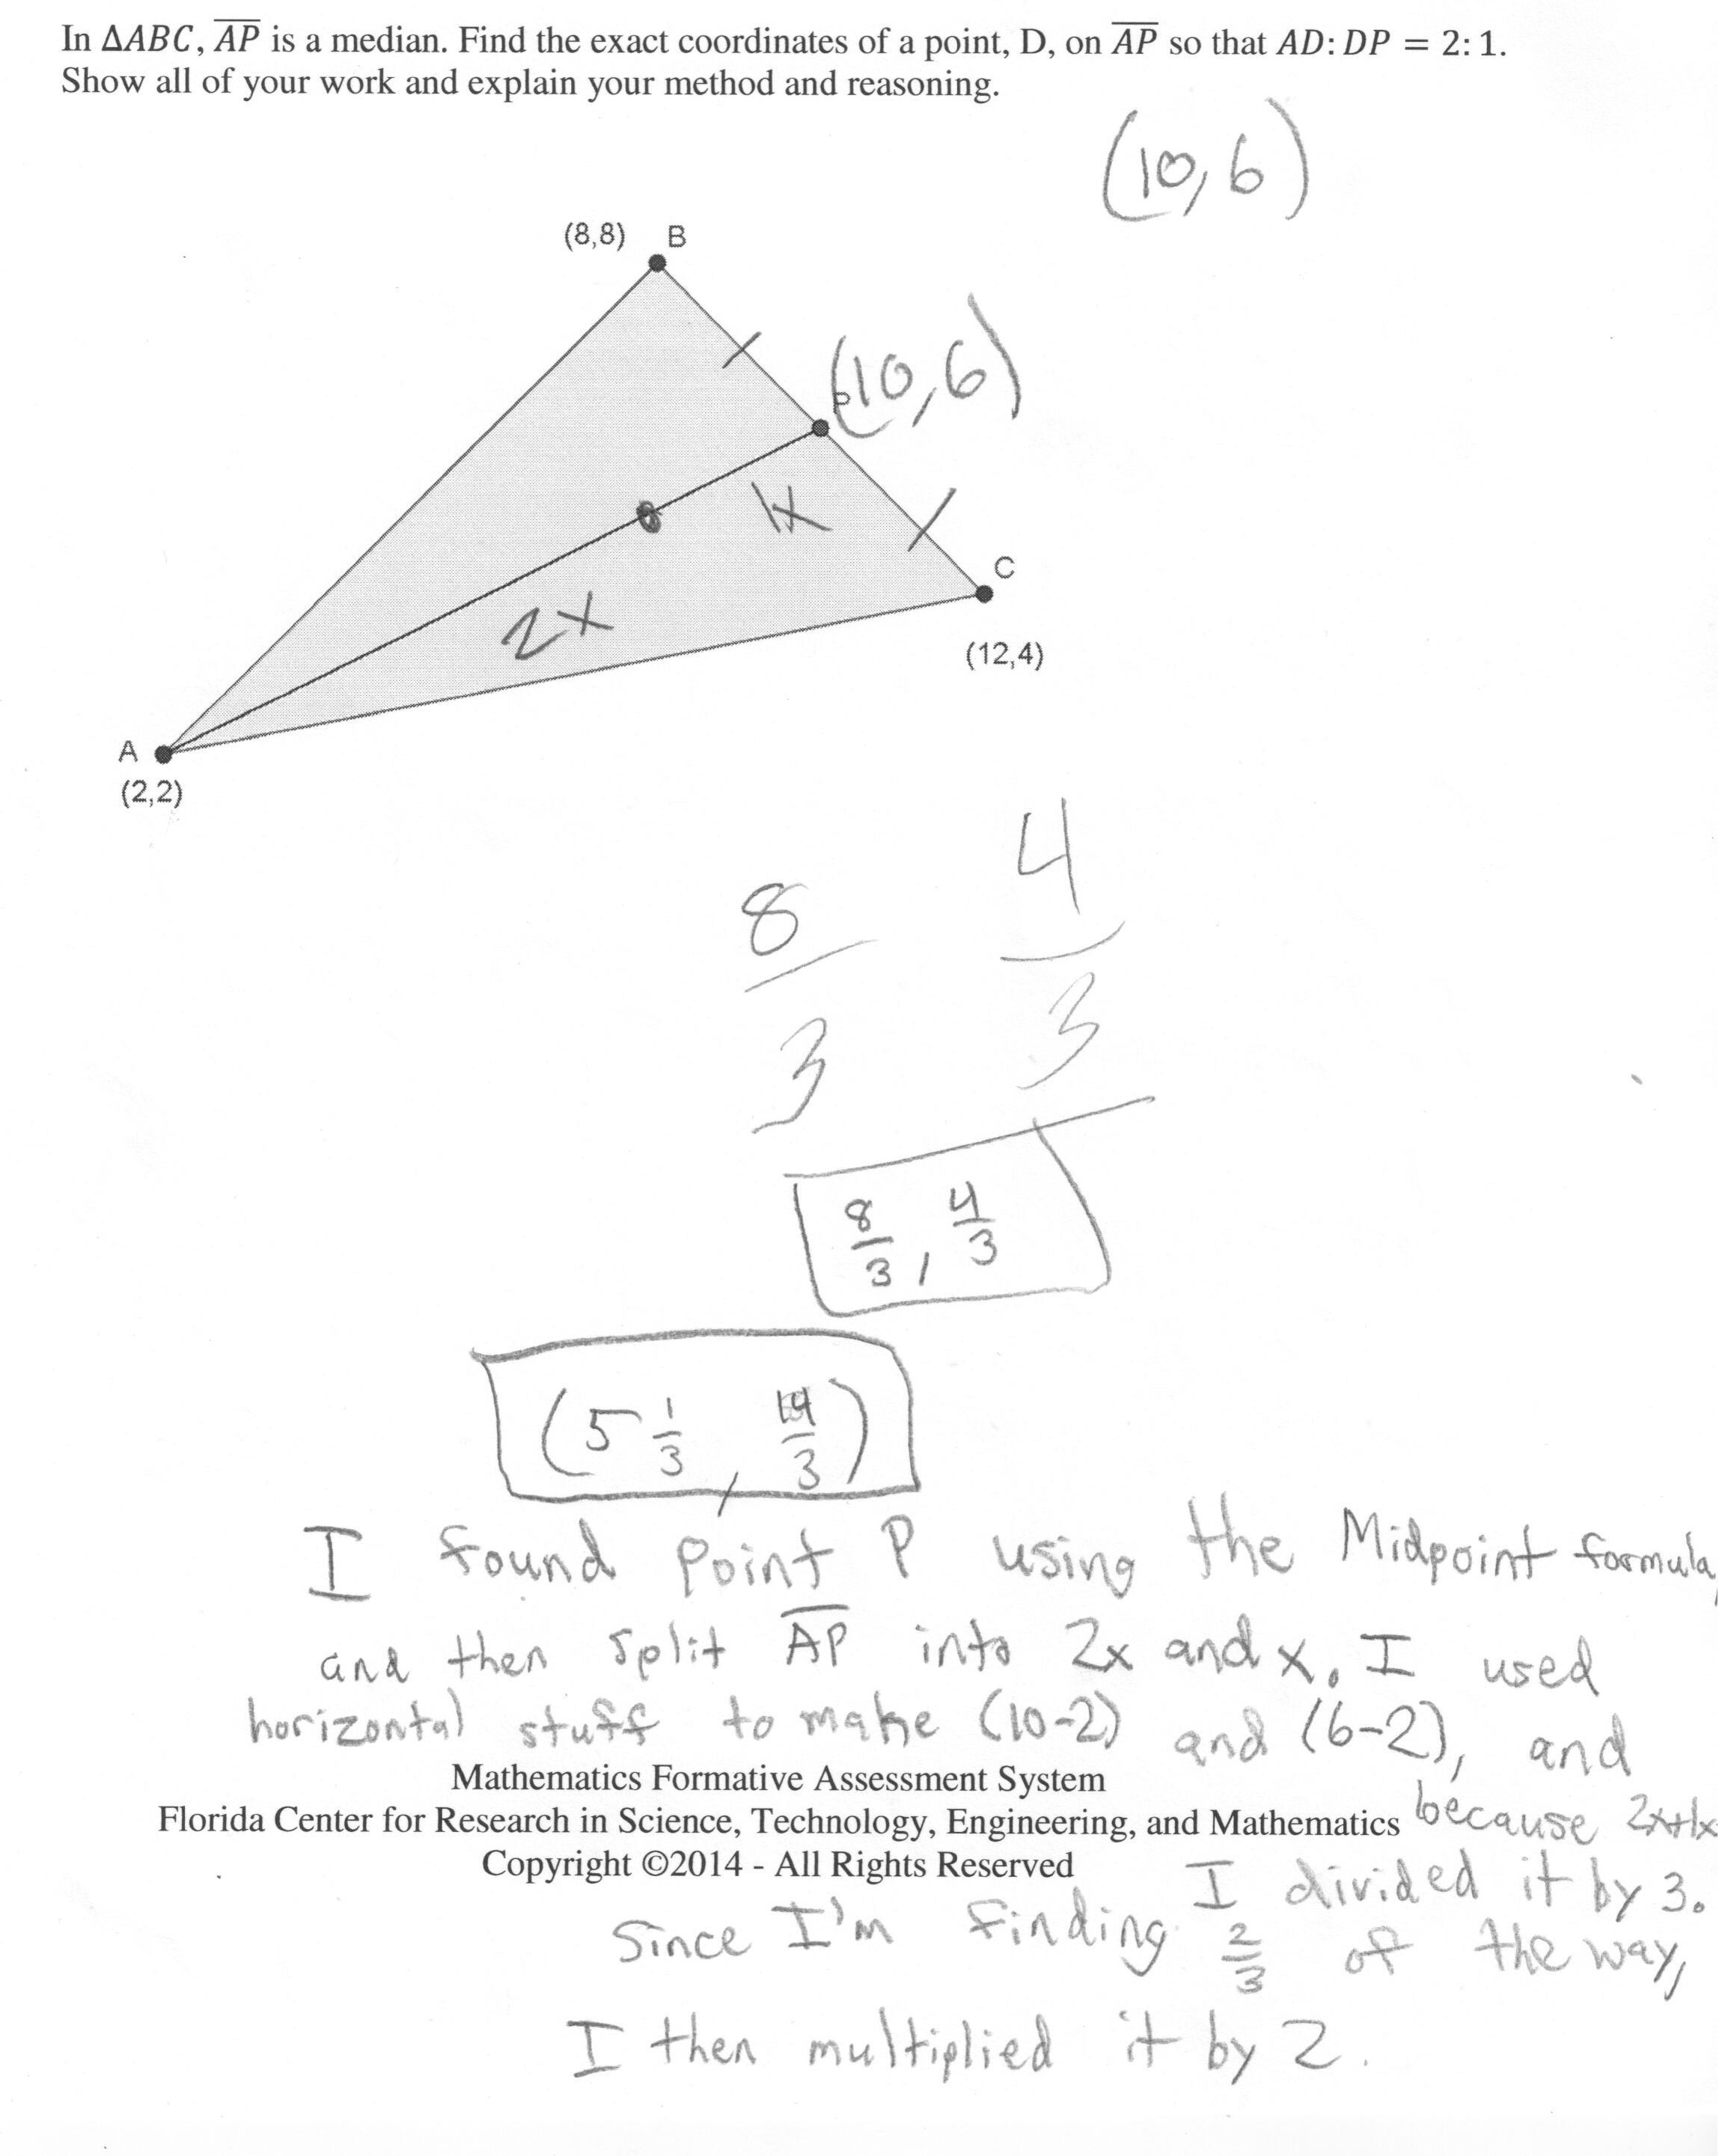 In ΔABC, AP is a median. Find the exact coordinates of a point, D, on AP so that AD: DP = 2: 1.
Show all of your work and explain your method and reasoning.
(10,6)
(8,8) B
P (10,6)
1x
C
2x
(12,4)
A
(2,2)
8/3 4/3
8/3, 4/3
(5 1/3, 14/3)
I found point P using the Midpoint formula,
and then split AP into 2x and x. I used
horizontal stuff to make (10-2) and (6-2), and
Mathematics Formative Assessment System
Florida Center for Research in Science, Technology, Engineering, and Mathematics because 2x+1x
Copyright ©2014 - All Rights Reserved
I divided it by 3.
Since I'm finding 2/3 of the way,
I then multiplied it by 2.